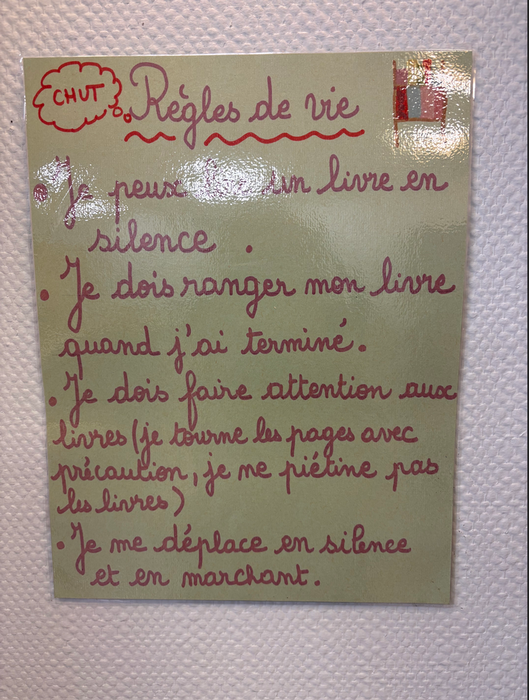 CHUT
Règles de vie
• Je peux lire un livre en
silence.
• Je dois ranger mon livre
quand j'ai terminé.
• Je dois faire attention aux
livres (je tourne les pages avec
précaution, je ne piétine pas
les livres)
• Je me déplace en silence
et en marchant.